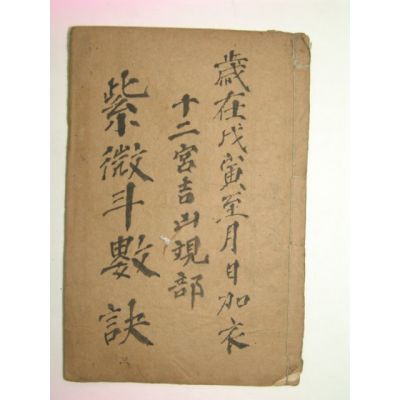 歲在戊寅至月日加衣
十二宮吉凶現部
紫微斗數訣